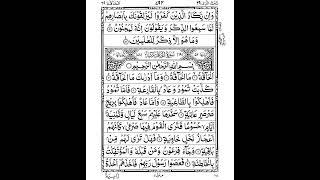 وَاِنْ يَّكَادُ الَّذِيْنَ كَفَرُوْا لَيُزْلِقُوْنَكَ بِاَبْصَارِهِمْ
لَمَّا سَمِعُوا الذِّكْرَ وَيَقُوْلُوْنَ اِنَّهٗ لَمَجْنُوْنٌ
وَمَا هُوَ اِلَّا ذِكْرٌ لِّلْعٰلَمِيْنَ
بِسْمِ اللّٰهِ الرَّحْمٰنِ الرَّحِيْمِ
اَلْحَآقَّةُ مَا الْحَآقَّةُ وَمَآ اَدْرٰىكَ مَا الْحَآقَّةُ
كَذَّبَتْ ثَمُوْدُ وَعَادٌۢ بِالْقَارِعَةِ فَاَمَّا ثَمُوْدُ
فَاُهْلِكُوْا بِالطَّاغِيَةِ وَاَمَّا عَادٌ فَاُهْلِكُوْا بِرِيْحٍ
صَرْصَرٍ عَاتِيَةٍ سَخَّرَهَا عَلَيْهِمْ سَبْعَ لَيَالٍ وَّثَمٰنِيَةَ
اَيَّامٍ حُسُوْمًا فَتَرَى الْقَوْمَ فِيْهَا صَرْعٰى كَاَنَّهُمْ
اَعْجَازُ نَخْلٍ خَاوِيَةٍ فَهَلْ تَرٰى لَهُمْ مِّنْۢ
بَاقِيَةٍ وَجَآءَ فِرْعَوْنُ وَمَنْ قَبْلَهٗ وَالْمُؤْتَفِكٰتُ
بِالْخَاطِئَةِ فَعَصَوْا رَسُوْلَ رَبِّهِمْ فَاَخَذَهُمْ اَخْذَةً